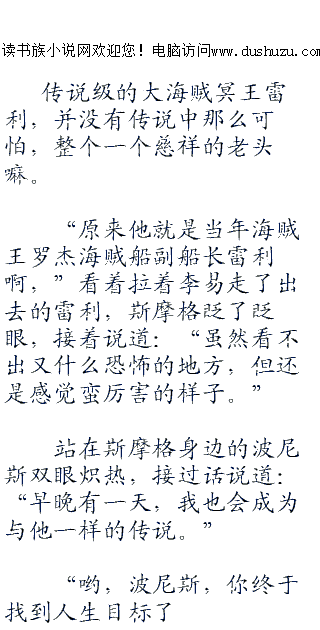 读书族小说网欢迎您！电脑访问www.dushuzu.com
传说级的大海贼冥王雷
利，并没有传说中那么可
怕，整个一个慈祥的老头
嘛。
“原来他就是当年海贼
王罗杰海贼船副船长雷利
啊，”看着拉着李易走了出
去的雷利，斯摩格眨了眨
眼，接着说道：“虽然看不
出又什么恐怖的地方，但还
是感觉蛮厉害的样子。”
站在斯摩格身边的波尼
斯双眼炽热，接过话说道：
“早晚有一天，我也会成为
与他一样的传说。”
“哟，波尼斯，你终于
找到人生目标了